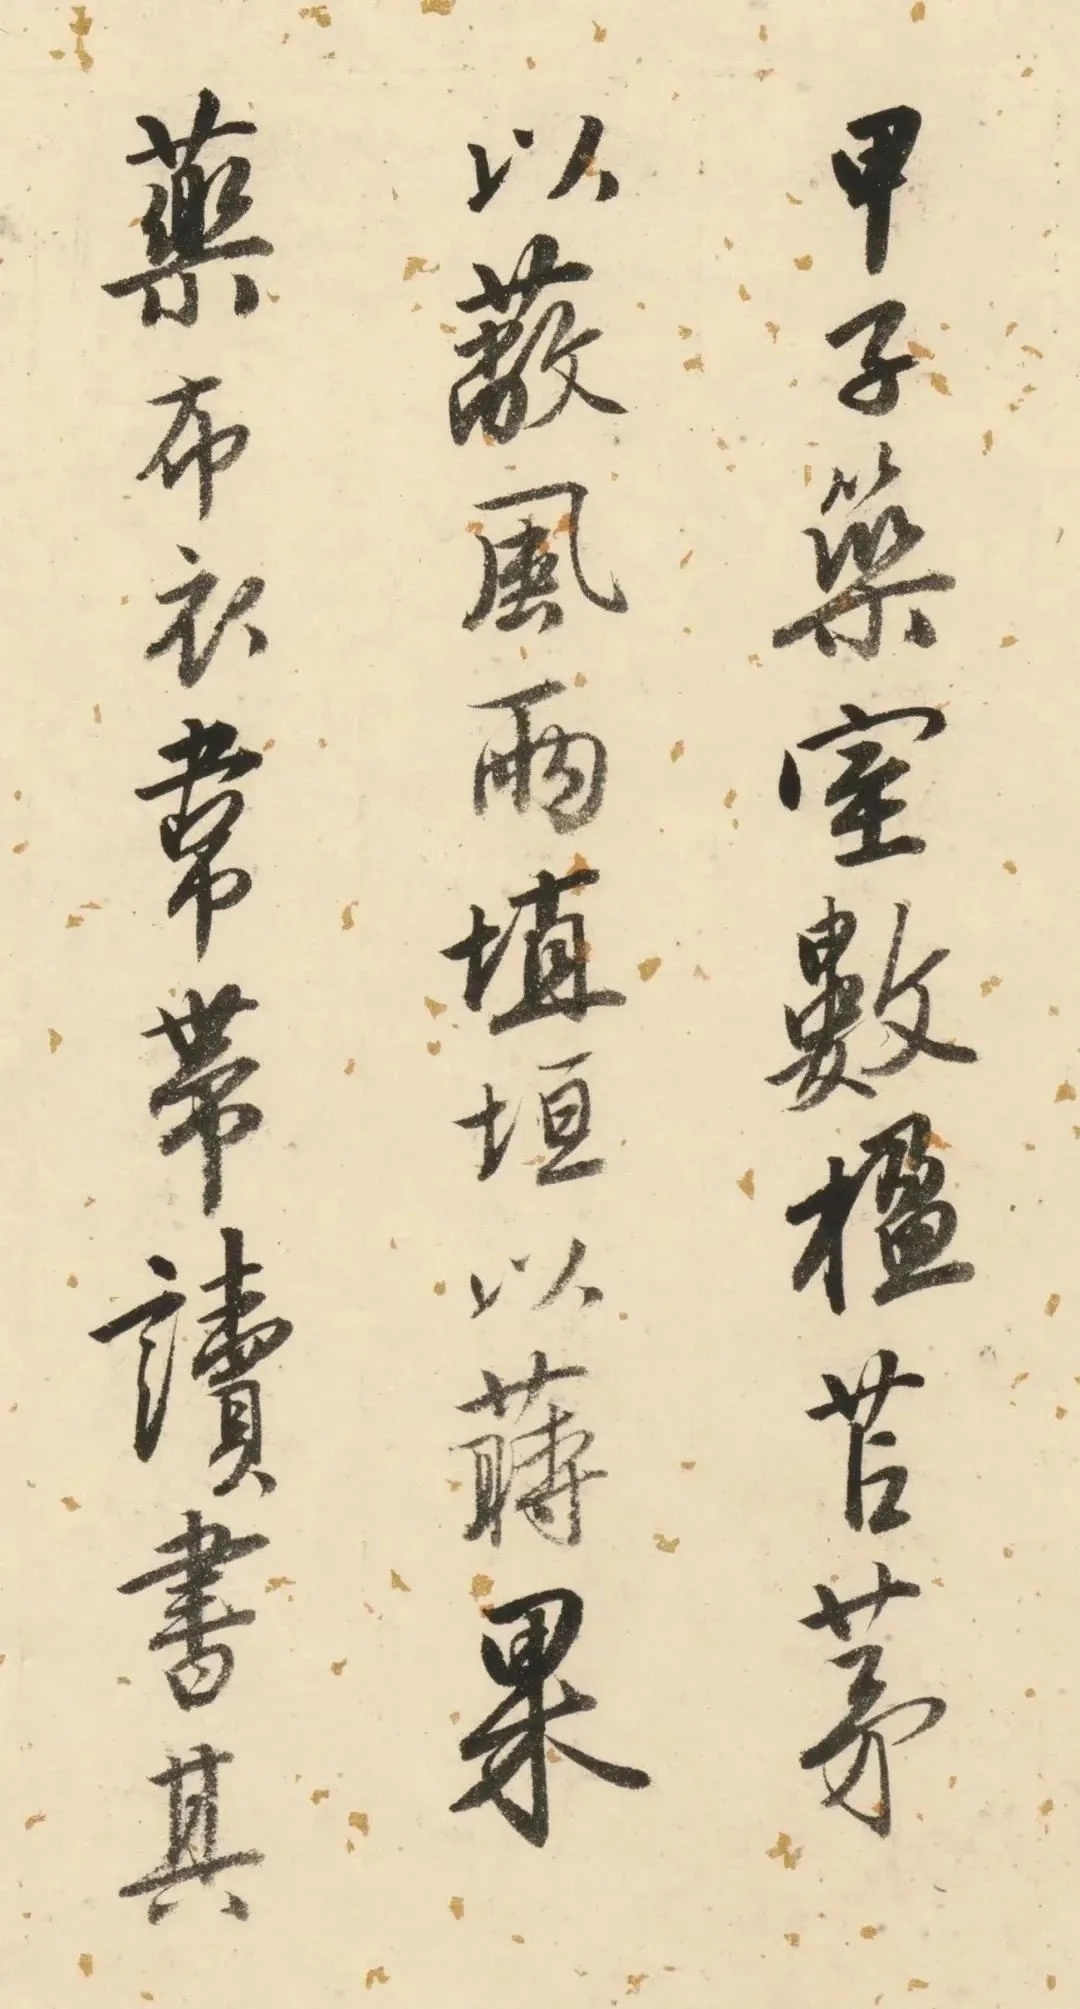 甲子築室數楹苫茅
以蔽風雨埴垣以蒔果
藥布衣韋帶讀書其